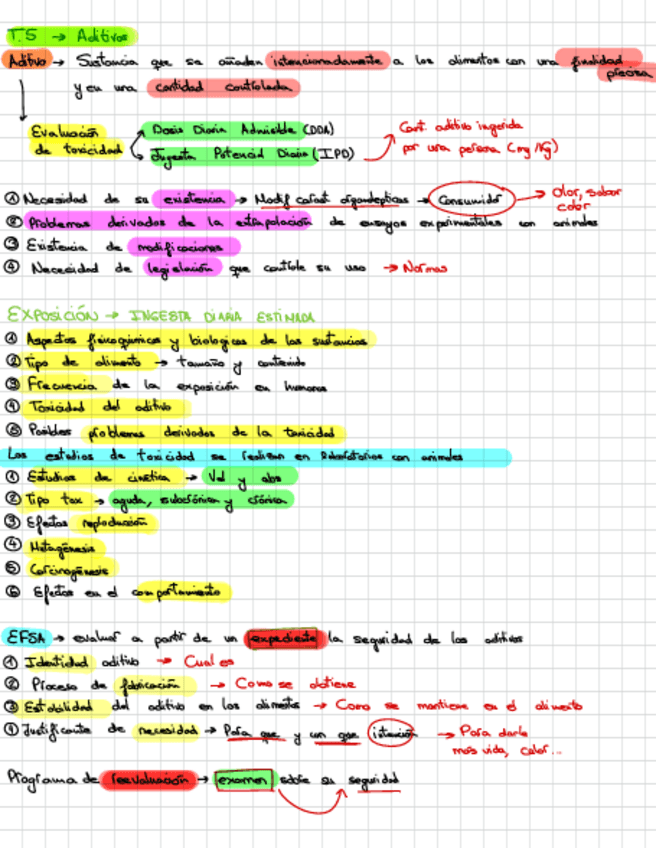 T.5 → Aditivos
Aditivo → Sustancia que se añaden intencionadamente a los alimentos con una finalidad precisa
y en una cantidad controlada
Evaluación de toxicidad
Dosis Diaria Admisible (DDA)
Ingesta Potencial Diaria (IPD)
Cant. aditivo ingerida
por una persona (mg/Kg)
① Necesidad de su existencia → Modif caract organolepticas → Consumidor → Olor, sabor color
② Problemas derivados de la extrapolación de ensayos experimentales con animales
③ Existencia de modificaciones
④ Necesidad de legislación que controle su uso → Normas
EXPOSICIÓN → INGESTA DIARIA ESTIMADA
① Aspectos fisicoquimicos y biologicos de las sustancias
② Tipo de alimento → tamaño y contenido
③ Frecuencia de la exposición en humanos
④ Toxicidad del aditivo
⑤ Posibles problemas derivados de la toxicidad
Los estudios de toxicidad se realizan en laboratorios con animales
① Estudios de cinetica → Vel y abs
② Tipo tox → aguda, subcrónica y crónica
③ Efectos reproducción
④ Mutagénesis
⑤ Carcinogénesis
⑥ Efectos en el comportamiento
EFSA → evaluar a partir de un expediente la seguridad de los aditivos
① Identidad aditivo → Cual es
② Proceso de fabricación → Como se obtiene
③ Estabilidad del aditivo en los alimentos → Como se mantiene en el alimento
④ Justificante de necesidad → Para que y con que intención → Para darle
mas vida, color...
Programa de reevaluación → examen sobre su seguridad